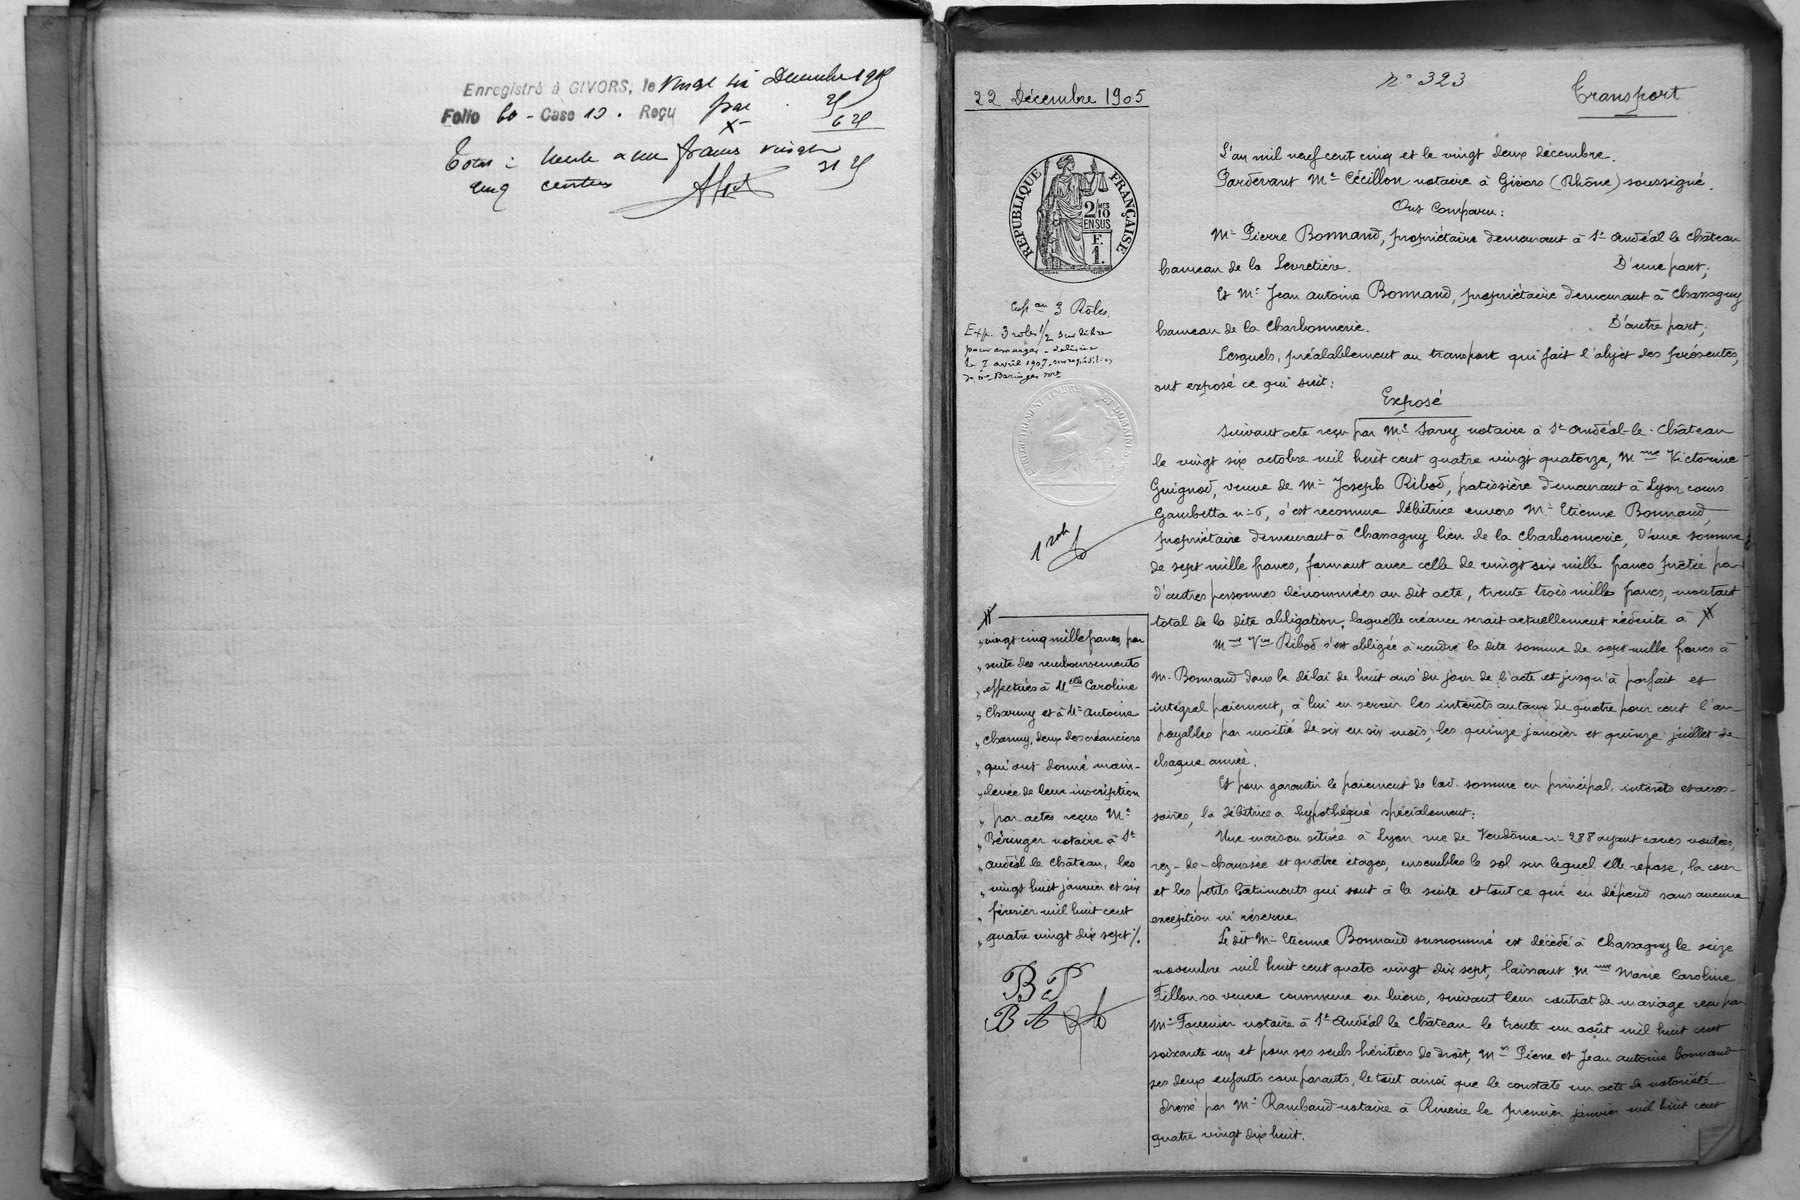 Enregistré à GIVORS, le vingt six Décembre 1905
Folio 60 - Case 10. Reçu
Total : trente un francs vingt
cinq centimes 31 25
22 Décembre 1905
N° 323
Transport
RÉPUBLIQUE FRANÇAISE
2/10 MES
EN SUS
F.
1.
3 Rôles.
Exp. 3 roles 1/2 sur
le 7 avril 1907
ENREGISTREMENT TIMBRE ET DOMAINES
L'an mil neuf cent cinq et le vingt deux décembre.
Pardevant Me Cécillon notaire à Givors (Rhône) soussigné.
Ont Comparu:
Mr Pierre Bonnand, propriétaire demeurant à St Andéol le Château
hameau de la Levretière. D'une part;
Et Mr Jean Antoine Bonnand, propriétaire demeurant à Chassagny
hameau de la Charbonnerie. D'autre part;
Lesquels, préalablement au transport qui fait l'objet des présentes,
ont exposé ce qui suit:
Exposé
Suivant acte reçu par Me Savy notaire à St Andéol-le-Château
le vingt six octobre mil huit cent quatre vingt quatorze, Mme Victorine
Guignod, veuve de Mr Joseph Ribod, patissière demeurant à Lyon cours
Gambetta n° 6, s'est reconnue débitrice envers Mr Etienne Bonnand,
propriétaire demeurant à Chassagny lieu de la Charbonnerie, d'une somme
de sept mille francs, formant avec celle de vingt six mille francs prêtée par
d'autres personnes dénommées au dit acte, trente trois mille francs, montant
total de la dite obligation, laquelle créance serait actuellement réduite à #
Mme Vve Ribod s'est obligée à rendre la dite somme de sept mille francs à
M. Bonnand dans le délai de huit ans du jour de l'acte et jusqu'à parfait et
intégral paiement, à lui en servir les intérêts au taux de quatre pour cent l'an
payables par moitié de six en six mois, les quinze janvier et quinze juillet de
chaque année.
Et pour garantir le paiement de lad. somme en principal, intérêts et acces-
soires, la débitrice a hypothéqué spécialement:
Une maison située à Lyon rue de Vendôme n° 288 ayant caves voutées,
rez-de-chaussée et quatre étages, ensembles le sol sur lequel elle repose, la cour
et les petits bâtiments qui sont à la suite et tout ce qui en dépend sans aucune
exception ni réserve.
Le dit Mr Etienne Bonnand susnommé est décédé à Chassagny le seize
novembre mil huit cent quatre vingt dix sept, laissant Mme Marie Caroline
Fillon sa veuve commune en biens, suivant leur contrat de mariage reçu par
Me Fournier notaire à St Andéol le Château le trente un août mil huit cent
soixante un et pour ses seuls héritiers de droit, Mrs Pierre et Jean Antoine Bonnand
ses deux enfants comparants, le tout ainsi que le constate un acte de notoriété
dressé par Me Rambaud notaire à Riverie le premier janvier mil huit cent
quatre vingt dix huit.
1 role
#
vingt cinq mille francs par
suite des remboursements
effectués à Melle Caroline
Charmy et à Mr Antoine
Charmy, deux des créanciers
qui ont donné main-
levée de leur inscription
par actes reçus Me
Béringer notaire à St
Andéol le Château, les
vingt huit janvier et six
février mil huit cent
quatre vingt dix sept %
BP
BA